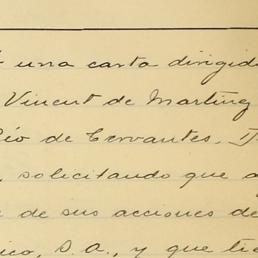 una carta dirigid
Vincent de Martíng
Río de Cervantes.
, solicitando que a
de sus acciones de
ico, S.A., y que tie